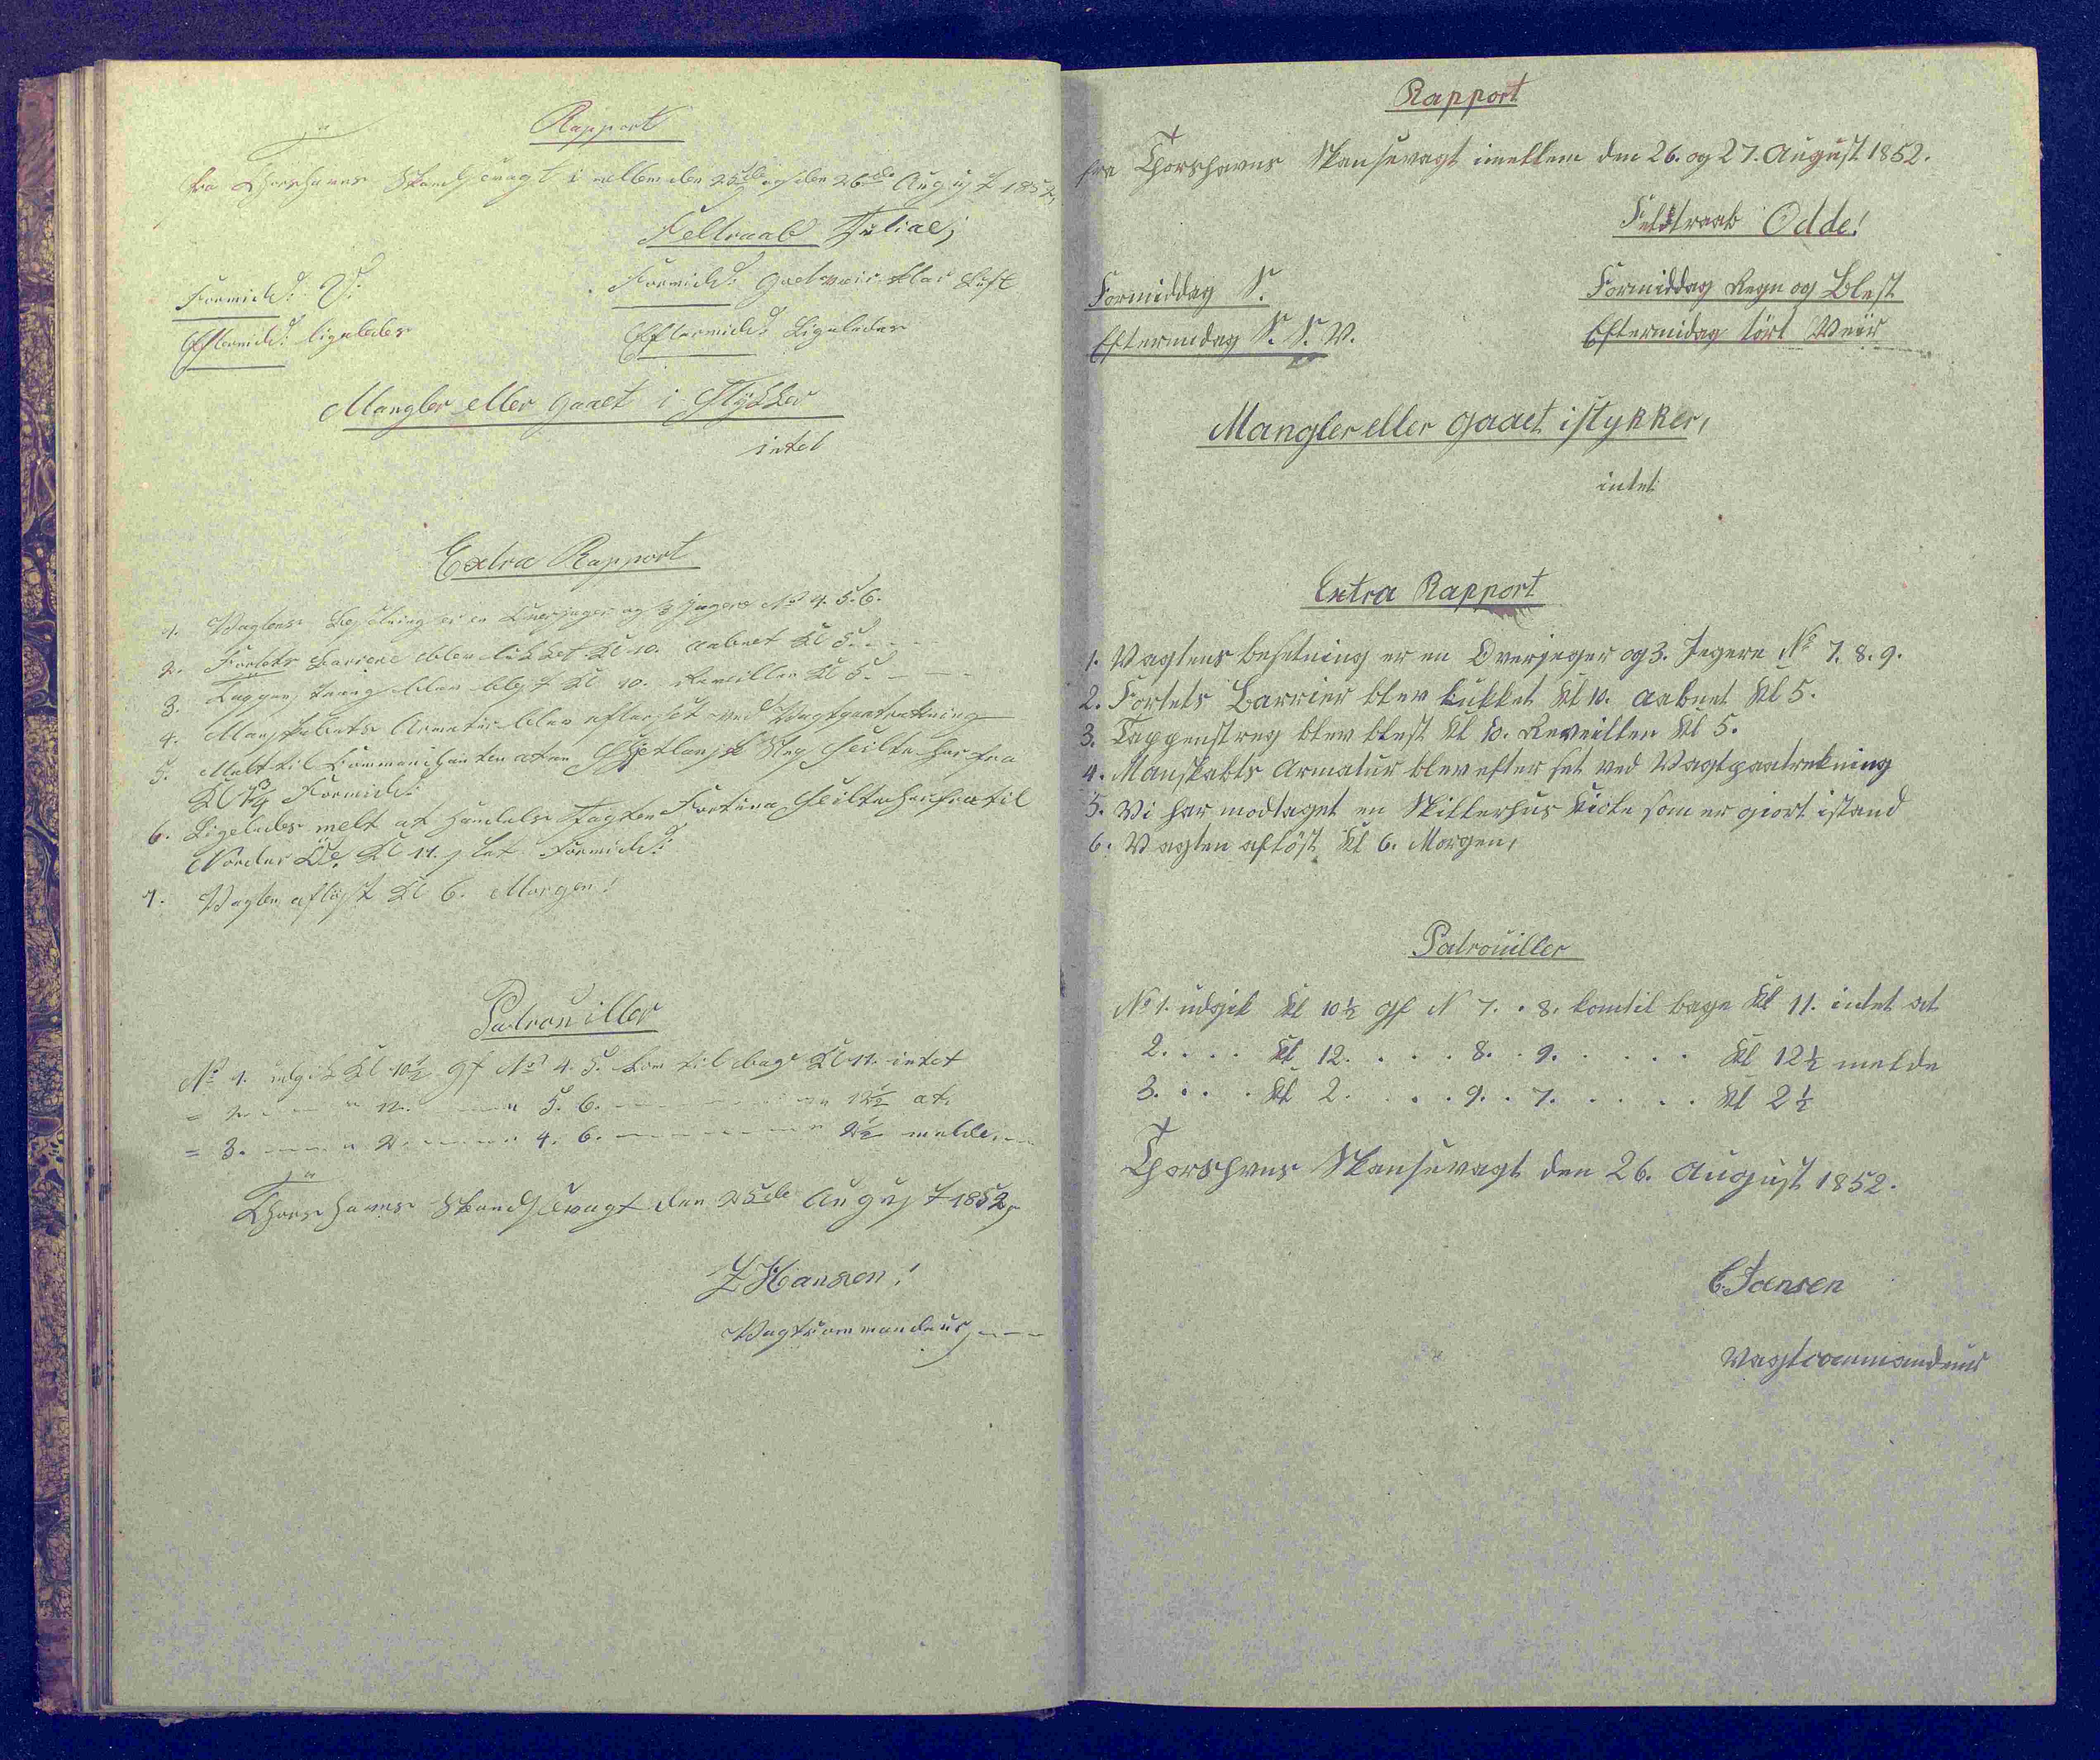 Rapport
fra Thorshavns Skandsevagt imellem den 25de og den 26de August 1852,
Feltraab Juliae;
Formidd: V:
Formidd: godt veir klar Luft
Eftermidd: ligeledes
Eftermidd: Ligeledes
Mangler eller gaaet i Stykker
intet
Extra Rapport
1. Vagtens Besetning er en Overjæger og 3 Jægere No 4. 5. 6.
2. Fortets Bariere blev lukket Kl 10. aabnet Kl 5.
3. Tappenstræg blev blest Kl 10. Reveillen Kl 5.
4. Manskabets Armatur blev efterset ved Vagtpaatrækning
5. Melt til Commendanten at en Shetlansk Slup seilte her fra
Kl Formidd:
6. Ligeledes melt at Handels Jagten Fortuna seilte herfra til
Norder Øe. Kl 11 slet Formidd:
7. Vagten afløst Kl 6. Morgen!
Patrouiller
No 1. udgik Kl 10½ gf No 4. 5. kom tilbage Kl 11. intet
= 2. " 12. " 5. 6. " 12½ at
= 3. " 2. " 4. 6. " 2½ melde.
Thorshavns Skandsevagt den 25de August 1852,
Z Hansen!
Vagtcommandeur
Rapport
fra Thorshavns Skansevagt imellem den 26. og 27. August 1852.
Feltraab Odde!
Formiddag S.
Formiddag Regn og Blest
Eftermidag S. S. V.
Eftermidag tört Veir
Mangler eller gaaet i stykker,
intet
Extra Rapport
1. Vagtens besetning er en Overjeger og 3. Jegere No 7. 8. 9.
2. Fortets Barrier blev lukket Kl 10. aabnet Kl 5.
3. Tappenstreg blev blest Kl 10. Reveillen Kl 5.
4. Manskabts Armatur blev efter set ved Vagtpaatrekning
5. Vi har modtaget en Skilterhus Kicke som er giort istand
6. Vagten aflöst Kl 6. Morgen,
Patrouiller
No 1. udgik Kl 10½ gf N 7. . 8. kom til bage Kl 11. intet at
2. . . . Kl 12. . . . 8. . 9. . . . . . Kl 12½ melde
3. . . . Kl 2. . . . 9. . 7. . . . . . Kl 2½
Thorshvns Skansevagt den 26. August 1852.
C. Jænsen
Vagtcommandeur